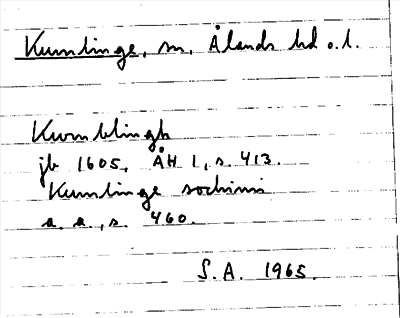 Kumlinge, sn, Ålands hd o. l.
Kwmblingh
jb 1605, ÅH 1, s. 413.
Kumlinge sochnn
a. a., s. 460.
S. A. 1965.